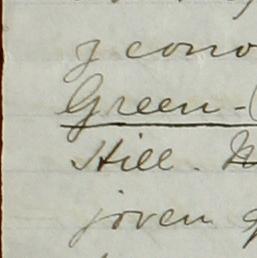 y cono
Green-
Hill.
joven